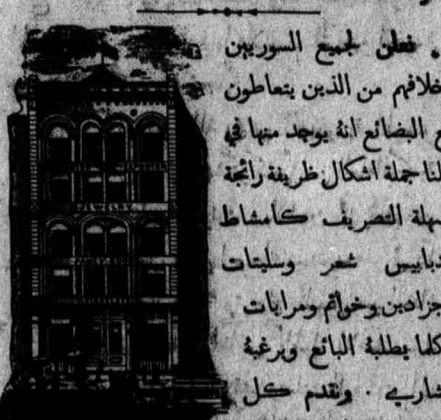 . فعلن لجميع السوريين
خلافهم من الذين يتعاطون
البضائع انهُ يوجد منها في
لنا جملة اشكال ظريفة رائجة
سهلة التصريف كامشاط
دبابيس شعر وسليتات
جزادين وخواتم ومرايات
كلما يطلبهُ البائع ويرغبهُ
شاري . ونقدم كل
JEWELRY